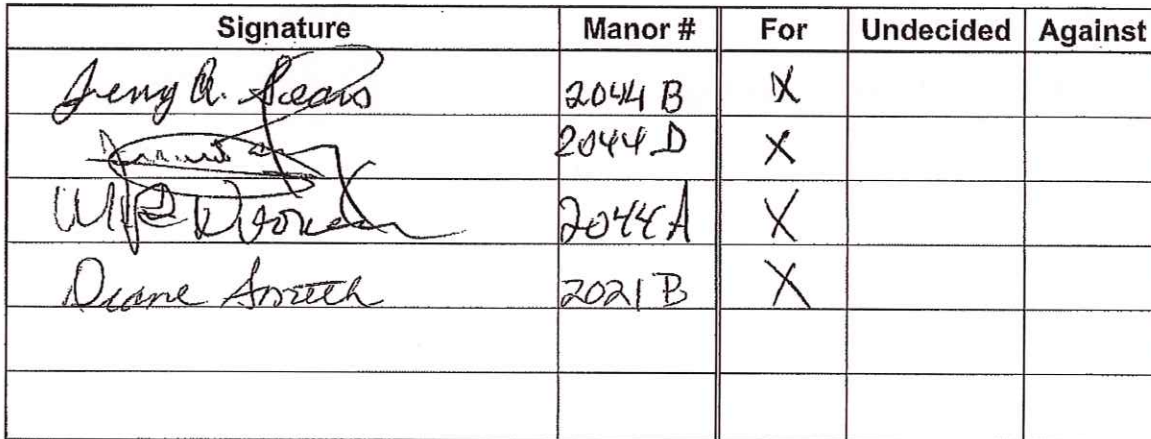 Signature Manor # For Undecided Against
Jerry A. Sears 2044 B X
2044 D X
2044 A X
Diane Smith 2021 B X